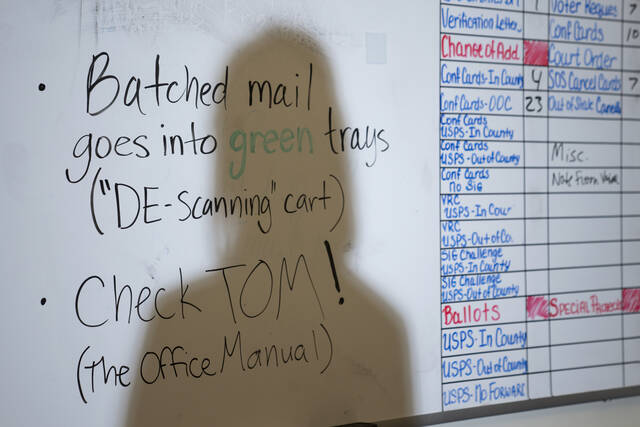 • Batched mail
goes into green trays
("DE-Scanning" cart)
• Check TOM!
(The Office Manual)
1 Voter Reques 7
Verification Letter Conf Cards 10
Change of Add. Court Order
Conf Cards-In County 4 SOS Cancel Cards 7
Conf Cards-OOC 23 Out of State Cancels
Conf Cards
USPS-In County
Conf Cards
USPS-Out of County Misc.
Conf Cards
no Sig Note From
VRC
USPS-In Cour
VRC
USPS-Out of Co.
Sig Challenge
USPS-In County
Sig Challenge
USPS-Out of County
Ballots Special Projects
USPS-In County
USPS-Out of County
USPS-No Forward